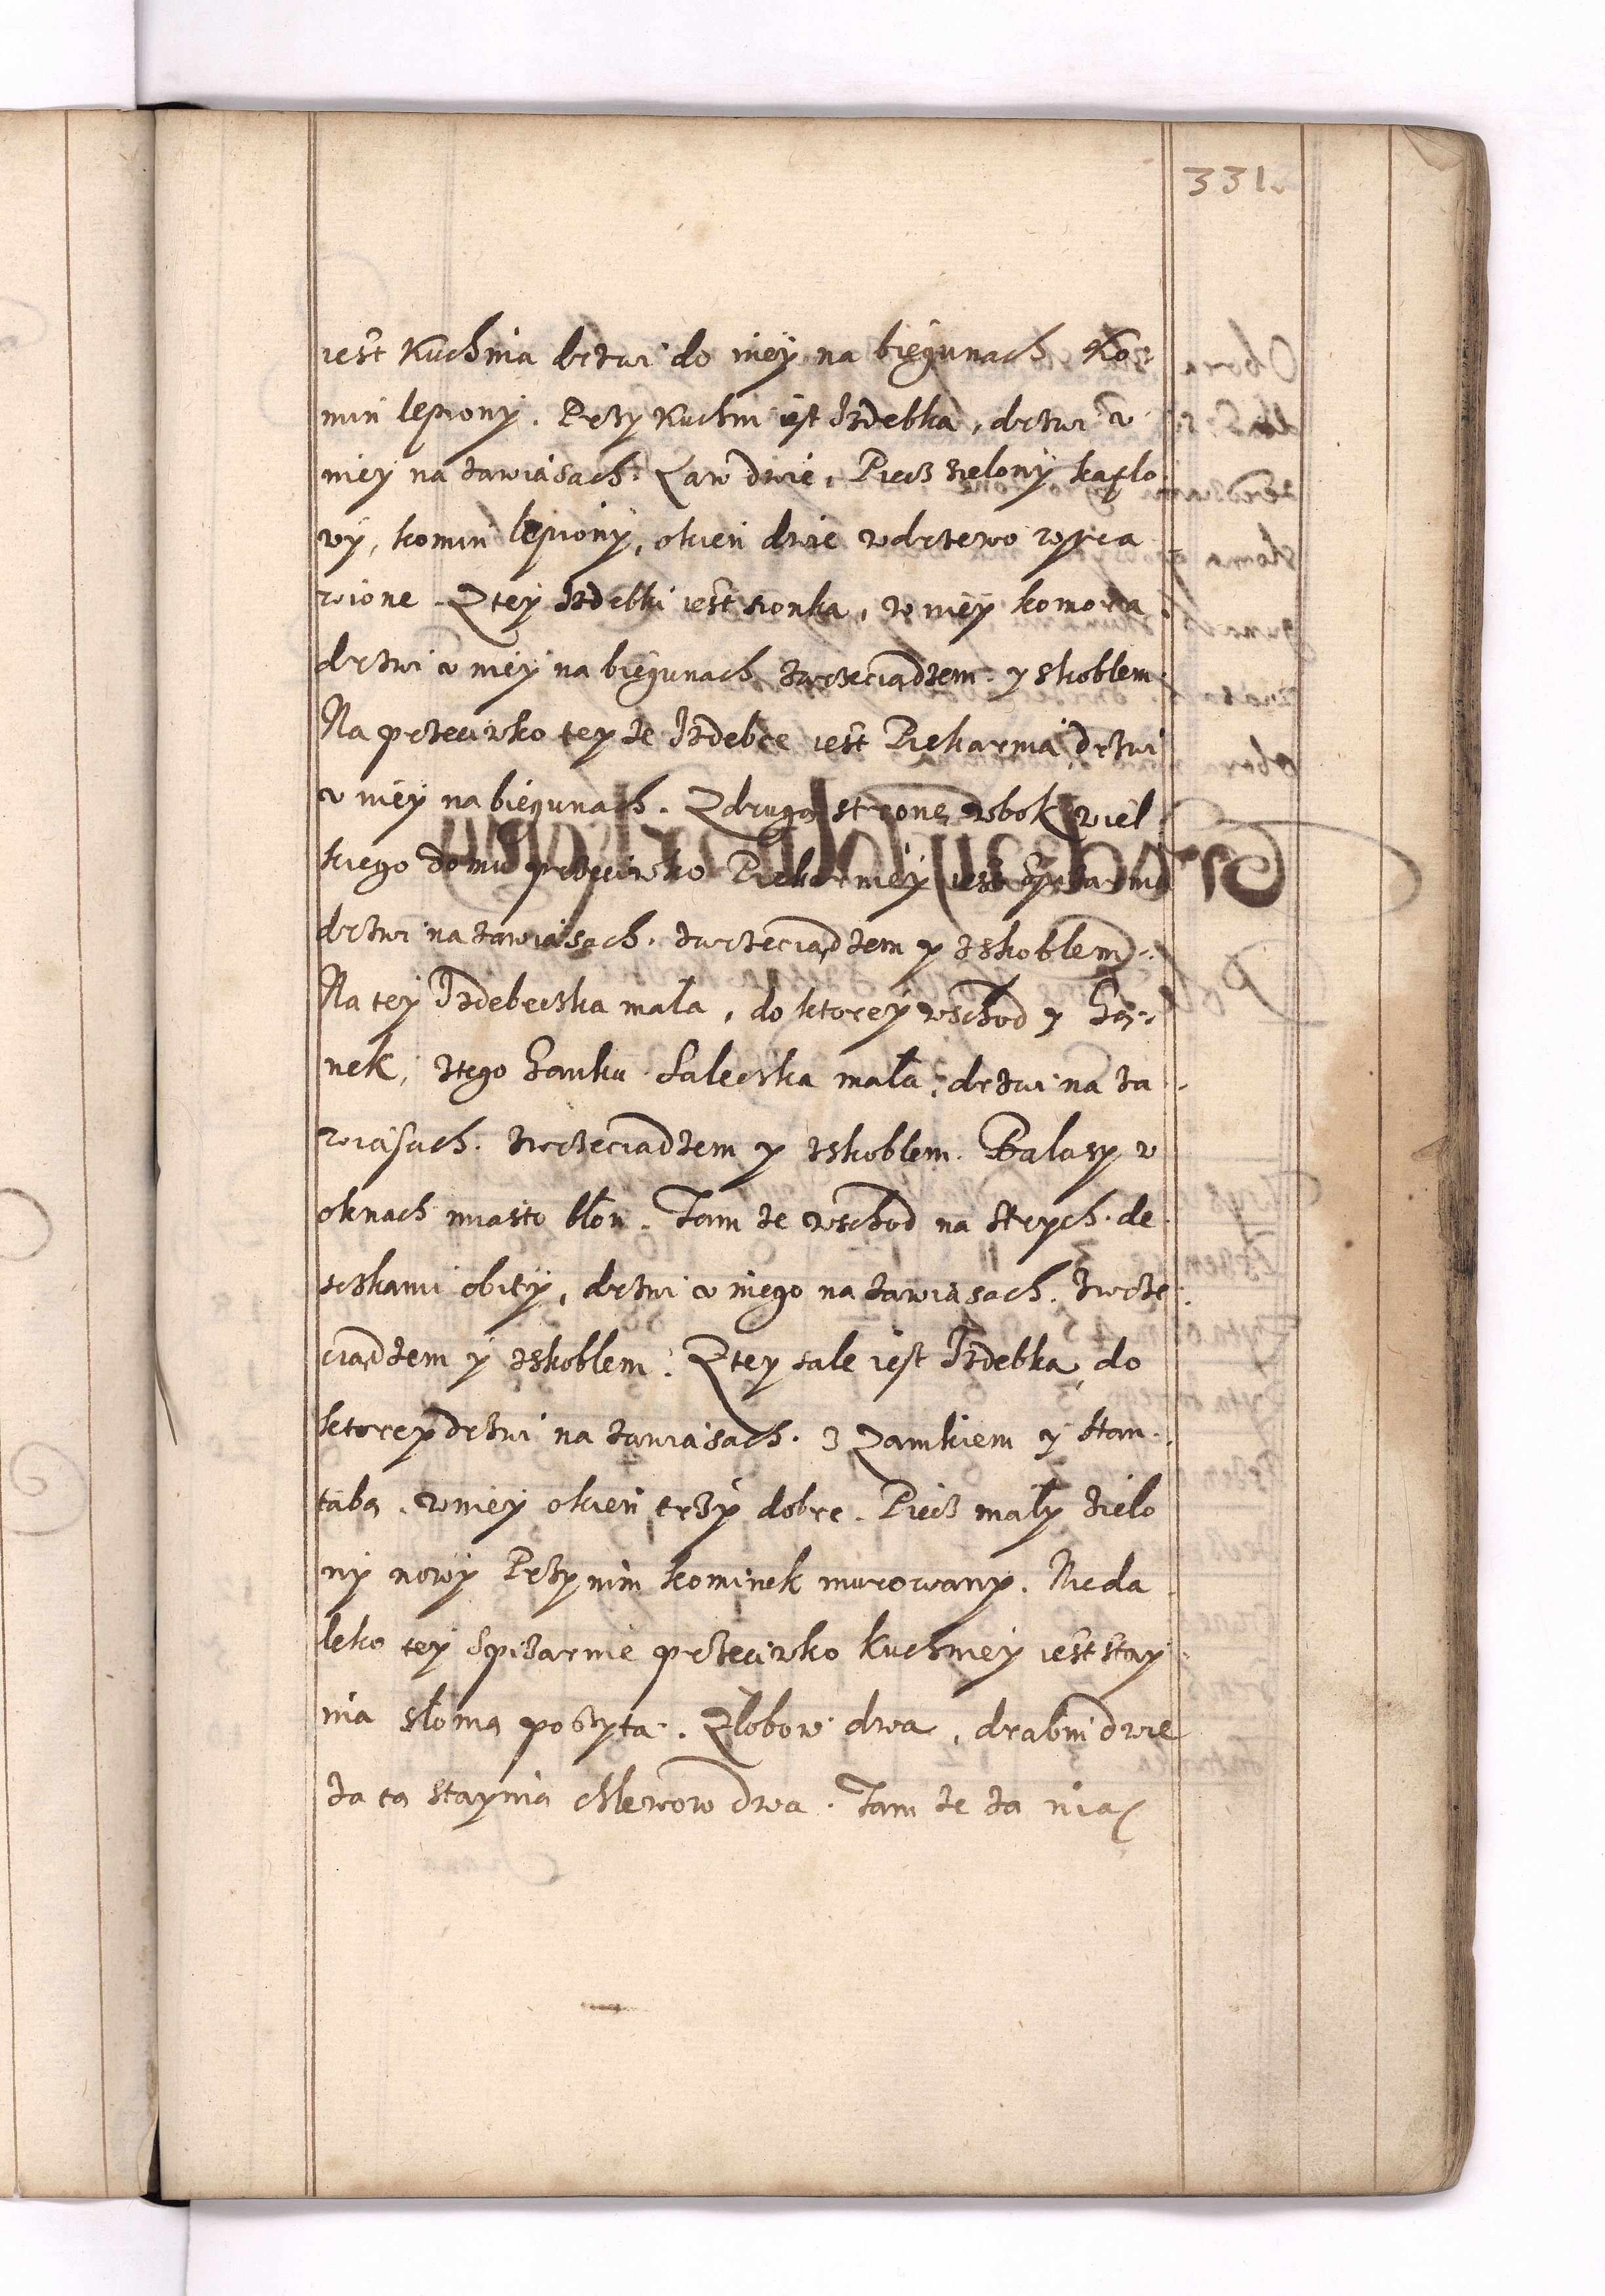 331.
iest Kuchnia drzwi do niey na biegunach Ko-
min lepiony. Przy Kuchni iest Izdebka, drzwi v
niey na zawiasach. Ław dwie, Piecz zielony kaflo
wy, komin lepiony, okien dwie wdrzewo wpra
wione. Ztey Izdebki iest sionka, w niey komora
drzwi v niey na biegunach zwrzeciądzem y skoblem.
Na przeciwko tey ze Izdebce iest Piekarnia, drzwi
v niey na biegunach. Zdrugą stronę wbok wiel
kiego domu przeciwko Piekarniey iest Spizarnia
drzwi na zawiasach. zwrzeciądzem y zskoblem.
Na tey Izdebeczka mała, do ktorey wschod y Ga-
nek, ztego Ganku Saleczka mała, drzwi na za
wiasach. zwrzeciadzem y zskoblem. Balasy v
oknach miasto błon. Tam ze wschod na strych. de
sczkami obity, drzwi v niego na zawiasach. zwrze
ciądzem y zskoblem. Ztey sale iest Izdebka, do
ktorey drzwi na zawiasach. z Zamkiem y klan-
tabą. wniey okien trzy dobre. Piecz mały zielo
ny nowy Przy nim kominek murowany. Nieda
leko tey Spizarnie przeciwko Kuchniey iest stay
nia słomą poszyta. Złobow dwa, drabin dwie
za tą staynią Chlewow dwa. Tam ze za nią